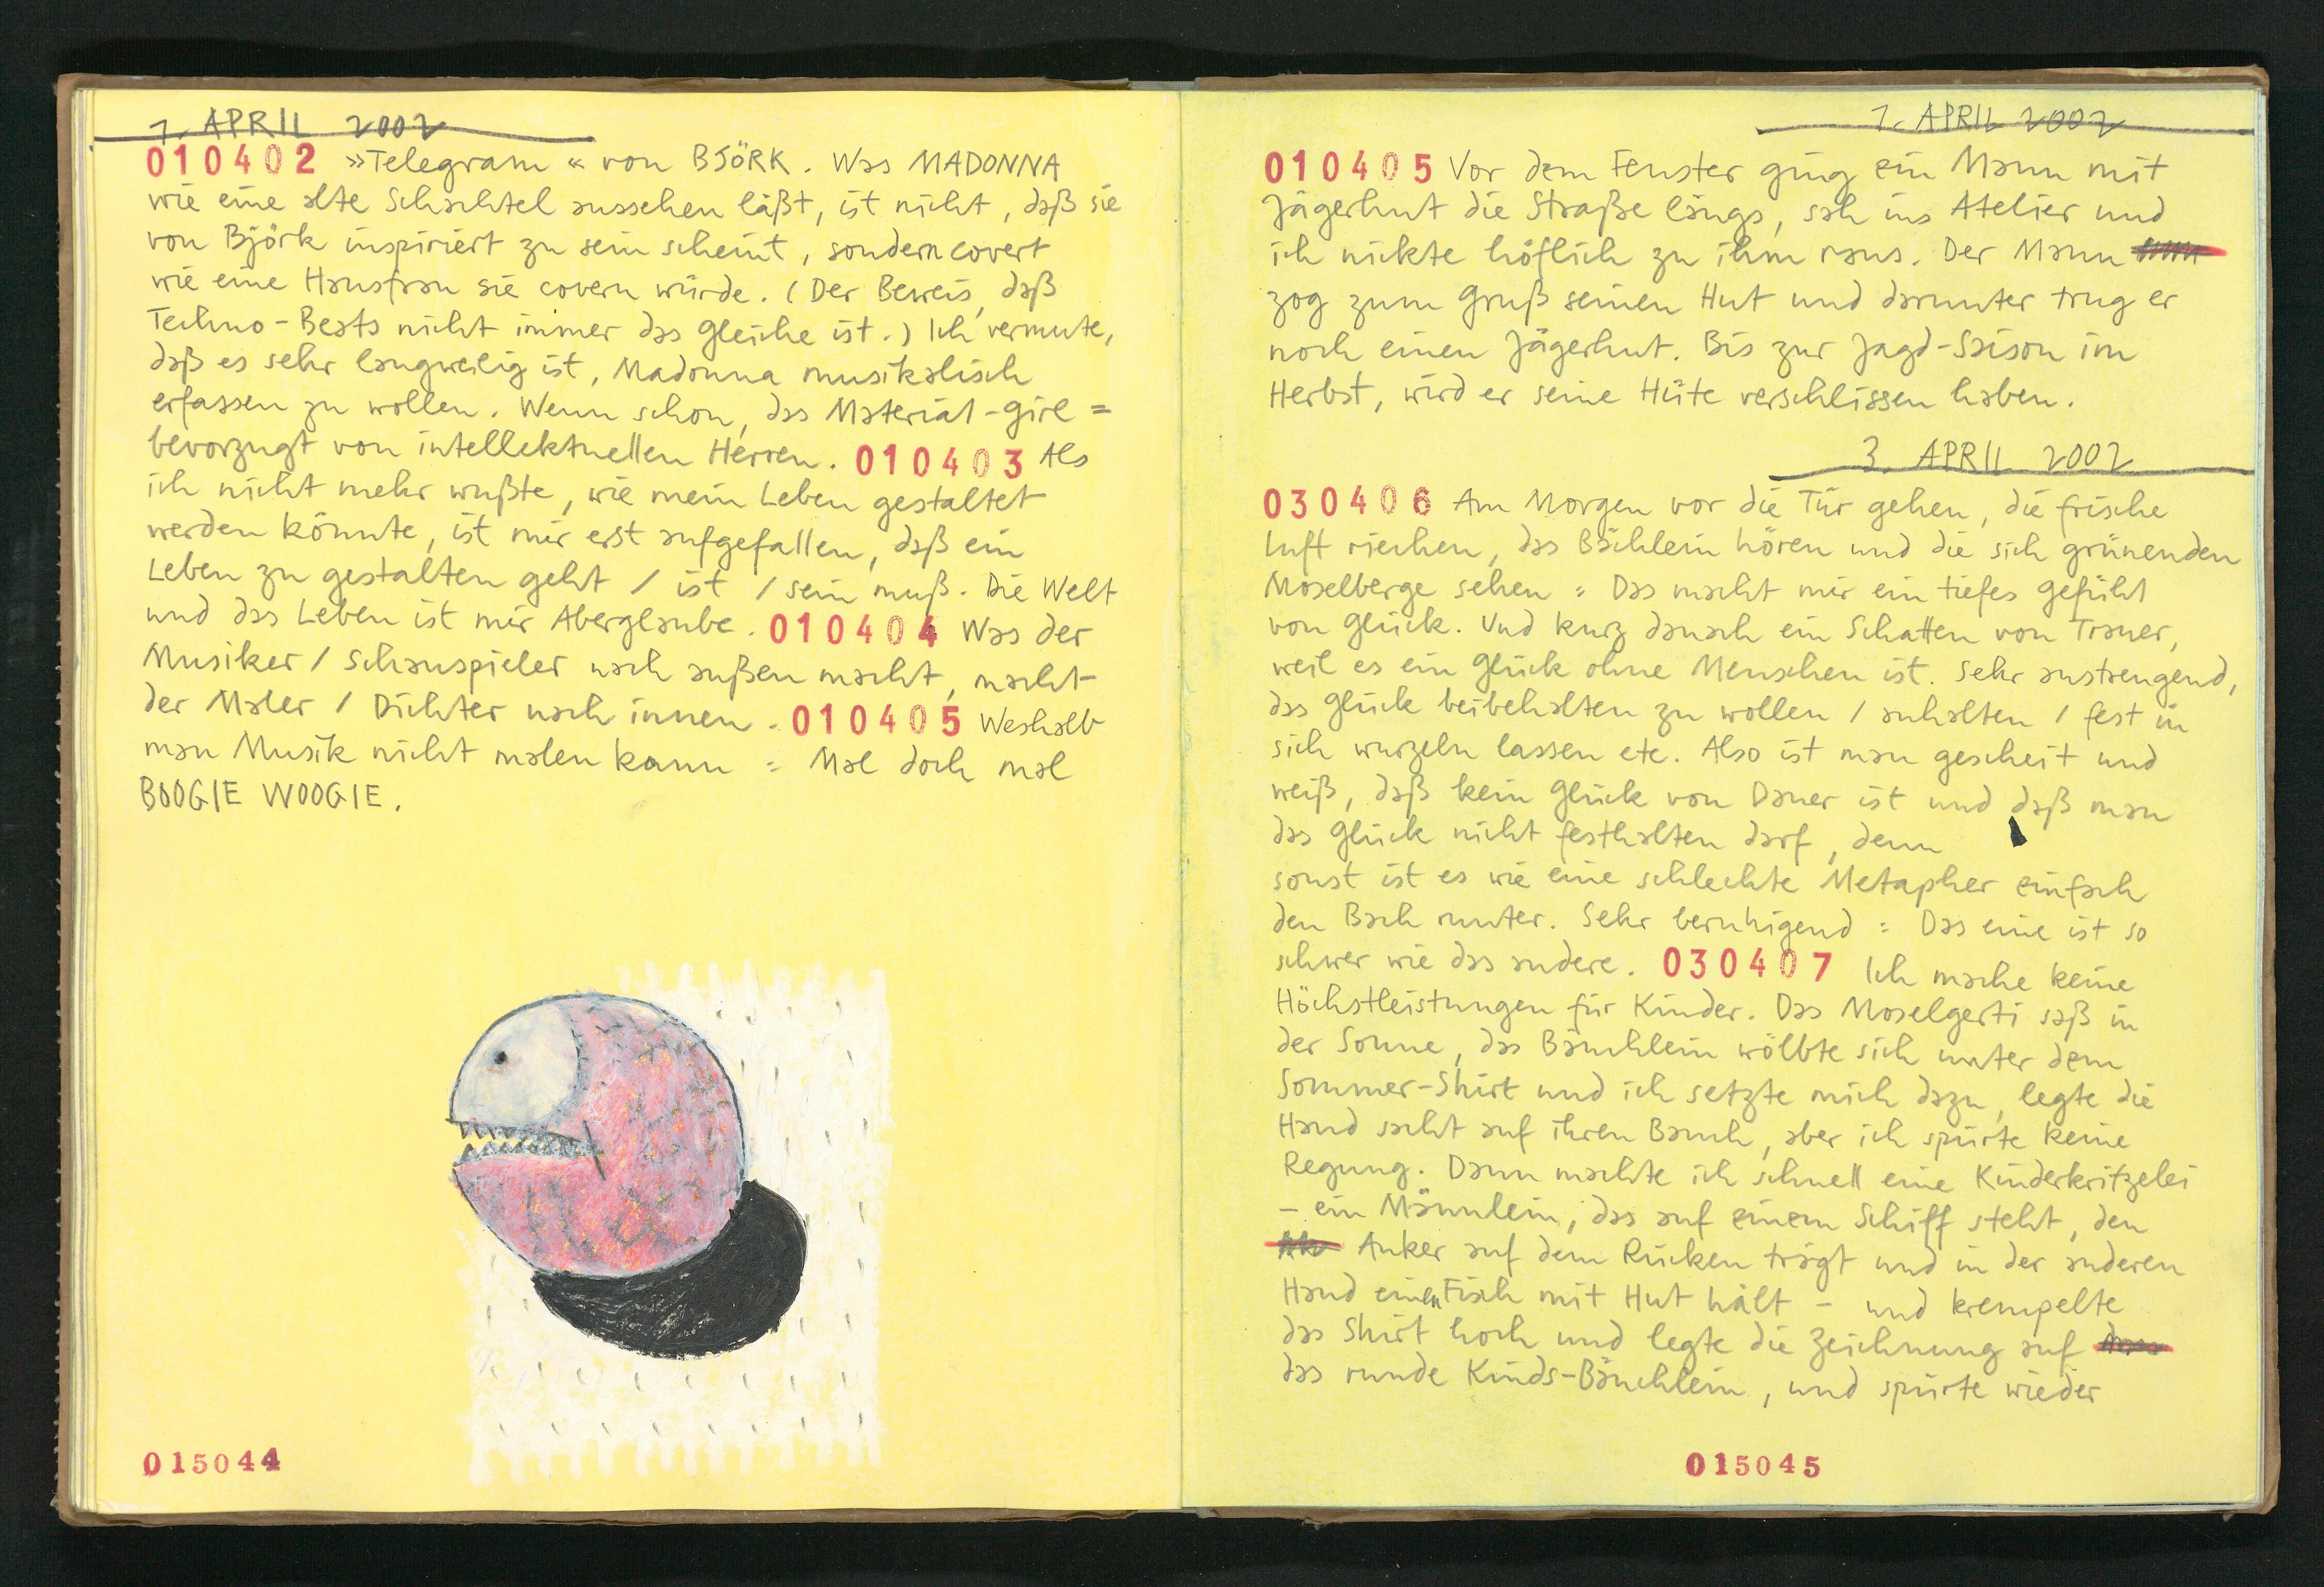 1. APRIL 2002
010402 »Telegram« von BJÖRK. Was MADONNA
wie eine alte Schachtel aussehen läßt, ist nicht, daß sie
von Björk inspiriert zu sein scheint, sondern covert
wie eine Hausfrau sie covern würde. (Der Beweis, daß
Techno-Beats nicht immer das gleiche ist.) Ich vermute,
daß es sehr langweilig ist, Madonna musikalisch
erfassen zu wollen. Wenn schon, das Material-girl =
bevorzugt von intellektuellen Herren. 010403 Als
ich nicht mehr wußte, wie mein Leben gestaltet
werden könnte, ist mir erst aufgefallen, daß ein
Leben zu gestalten geht / ist / sein muß. Die Welt
und das Leben ist mir Aberglaube. 010404 Was der
Musiker / Schauspieler nach außen macht, macht
der Maler / Dichter nach innen. 010405 Weshalb
man Musik nicht malen kann = Mal doch mal
BOOGIE WOOGIE.
015044
1. APRIL 2002
010405 Vor dem Fenster ging ein Mann mit
Jägerhut die Straße längs, sah ins Atelier und
ich nickte höflich zu ihm raus. Der Mann
zog zum Gruß seinen Hut und darunter trug er
noch einen Jägerhut. Bis zur Jagd-Saison im
Herbst, wird er seine Hüte verschlissen haben.
3. APRIL 2002
030406 Am Morgen vor die Tür gehen, die frische
Luft riechen, das Bächlein hören und die sich grünenden
Moselberge sehen = Das macht mir ein tiefes Gefühl
von Glück. Und kurz danach ein Schatten von Trauer,
weil es ein Glück ohne Menschen ist. Sehr anstrengend,
das Glück beibehalten zu wollen / anhalten / fest in
sich wurzeln lassen etc. Also ist man gescheit und
weiß, daß kein Glück von Dauer ist und daß man
das Glück nicht festhalten darf, denn
sonst ist es wie eine schlechte Metapher einfach
den Bach runter. Sehr beruhigend = Das eine ist so
schwer wie das andere. 030407 Ich mache keine
Höchstleistungen für Kinder. Das Moselgerti saß in
der Sonne, das Bäuchlein wölbte sich unter dem
Sommer-Shirt und ich setzte mich dazu, legte die
Hand sacht auf ihren Bauch, aber ich spürte keine
Regung. Dann machte ich schnell eine Kinderkritzelei
– ein Männlein, das auf einem Schiff steht, den
Anker auf dem Rücken trägt und in der anderen
Hand einen Fisch mit Hut hält – und krempelte
das Shirt hoch und legte die Zeichnung auf
das runde Kinds-Bäuchlein, und spürte wieder
015045